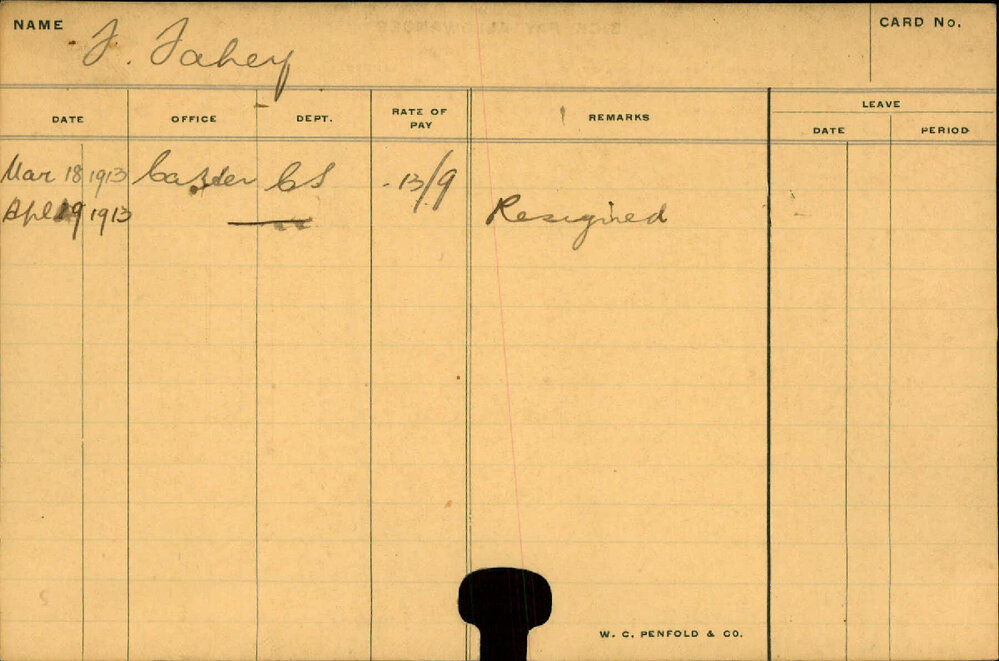 NAME F. Fahey CARD No.
LEAVE
DATE OFFICE DEPT. RATE OF PAY REMARKS DATE PERIOD
Mar 18 1913 Caster CS 13/9
Apl 19 1913 Resigned
W. C. PENFOLD & CO.